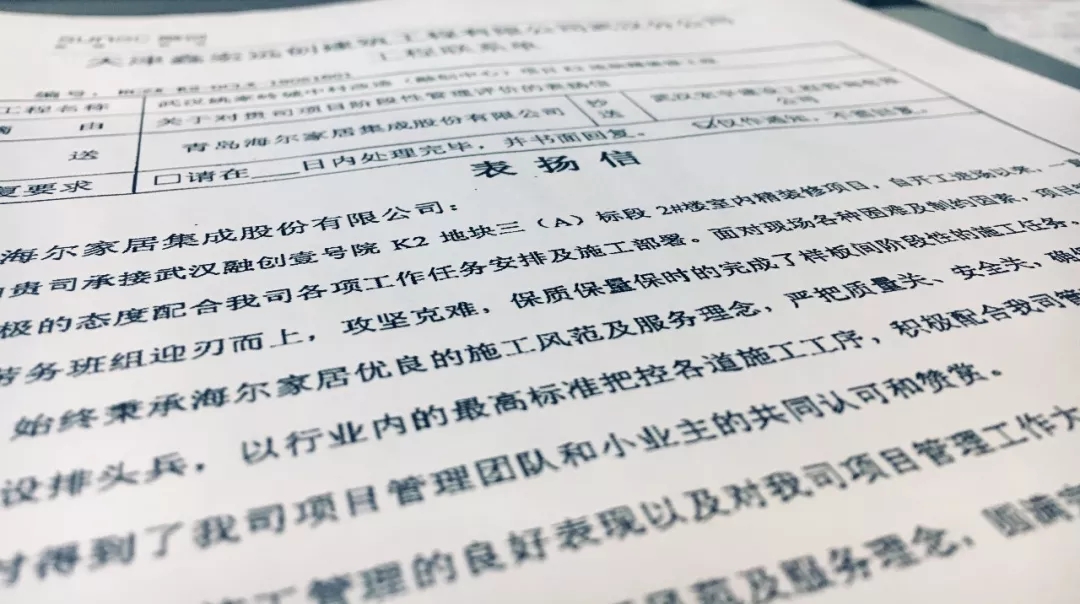 天津鑫宏远创建筑工程有限公司武汉分公司
工程联系单
编号：
工程名称
由 关于对贵司项目阶段性管理评价的表扬信
送 青岛海尔家居集成股份有限公司 抄送 公司
复要求 □请在___日内处理完毕，并书面回复。 ☑仅作通知，不需回复。
表扬信
海尔家居集成股份有限公司：
贵司承接武汉融创壹号院 K2 地块三（A）标段 2#楼室内精装修项目，自开工进场以来，一
极的态度配合我司各项工作任务安排及施工部署。面对现场各种困难及制约因素，项目
劳务班组迎刃而上，攻坚克难，保质保量保时的完成了样板间阶段性的施工任务。
始终秉承海尔家居优良的施工风范及服务理念，严把质量关、安全关，确保
设排头兵，以行业内的最高标准把控各道施工工序，积极配合我司管
得到了我司项目管理团队和小业主的共同认可和赞赏。
施工管理的良好表现以及对我司项目管理工作大
风范及服务理念，圆满完